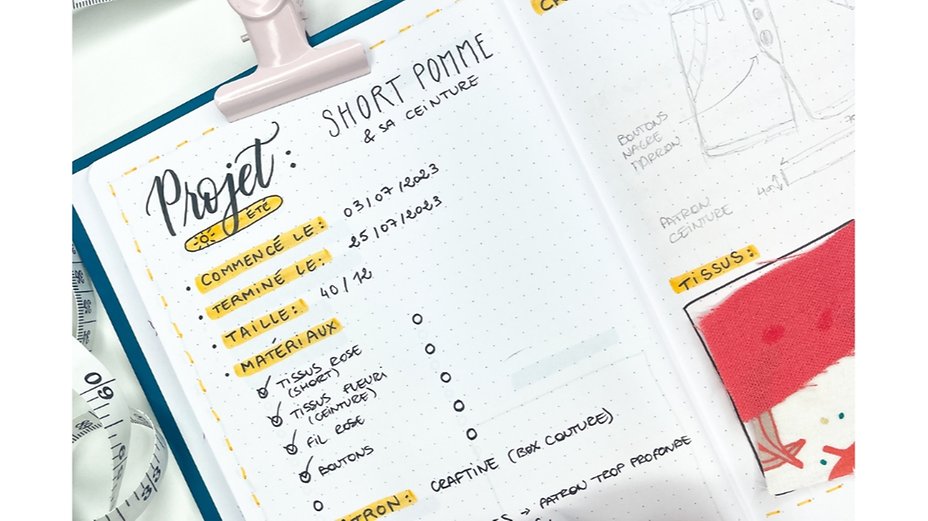 Projet :
SHORT POMME
& SA CEINTURE
ÉTÉ
COMMENCÉ LE : 03/07/2023
TERMINÉ LE : 25/07/2023
TAILLE : 40/12
MATÉRIAUX
TISSUS ROSE
(SHORT)
TISSUS FLEURI
(CEINTURE)
FIL ROSE
BOUTONS
ATRON : CRAFTINE (BOX COUTURE)
→ PATRON TROP PROFONDE
BOUTONS
NACRE
MARRON
PATRON
CEINTURE
TISSUS :
60